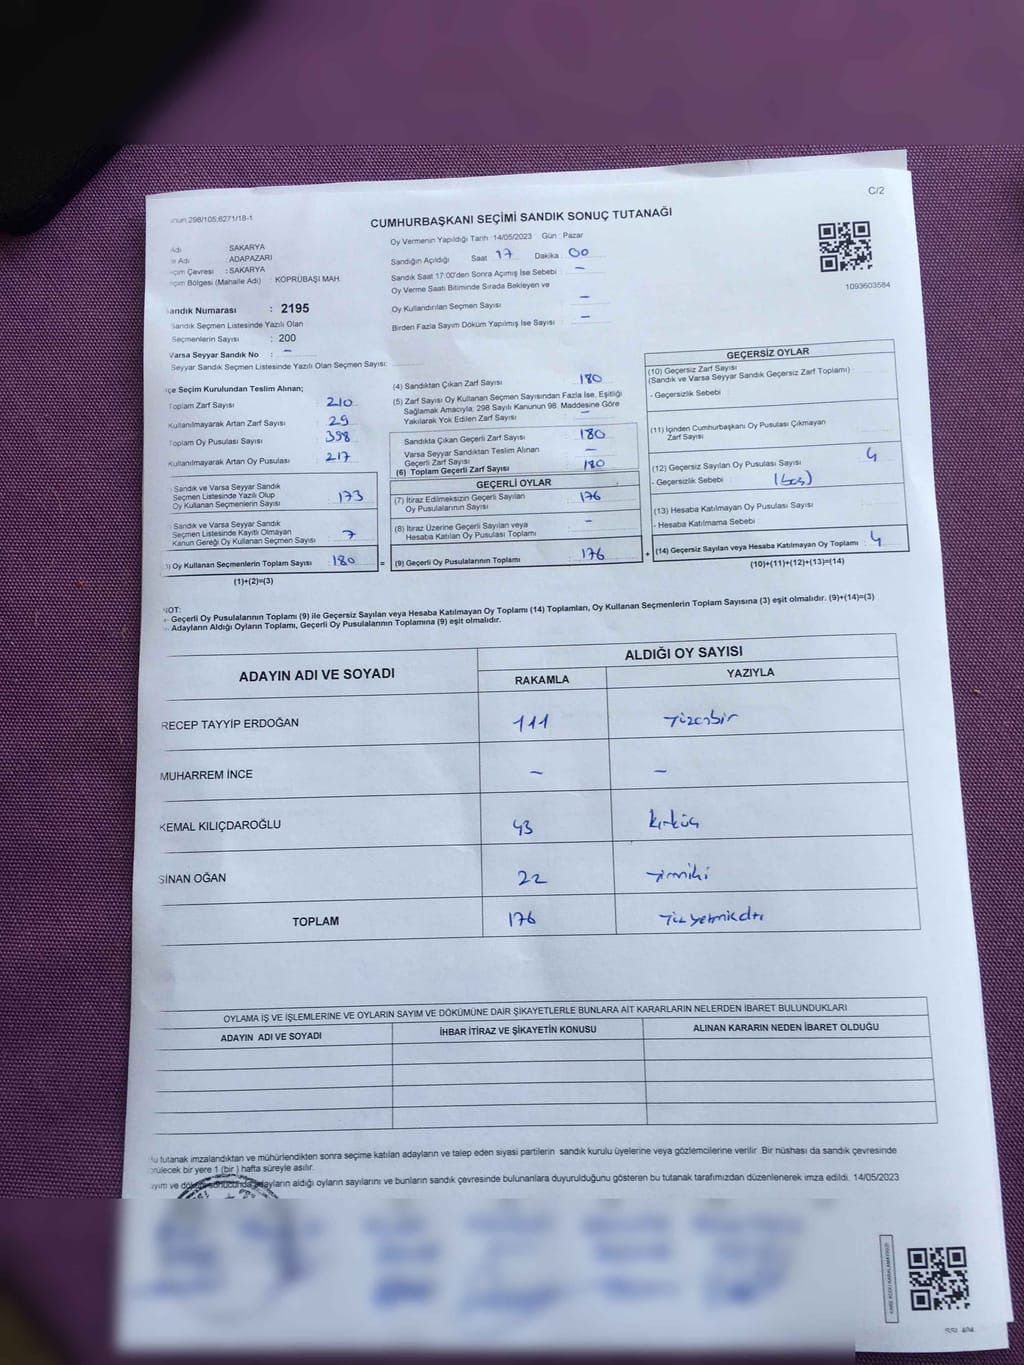 298/105,6271/18-1
C/2
CUMHURBAŞKANI SEÇİMİ SANDIK SONUÇ TUTANAĞI
Adı : SAKARYA
Adı : ADAPAZARI
Çevresi : SAKARYA
Bölgesi (Mahalle Adı) : KÖPRÜBAŞI MAH.
Oy Vermenin Yapıldığı Tarih :14/05/2023 Gün : Pazar
Sandığın Açıldığı Saat 17 Dakika 00
Sandık Saat 17:00'den Sonra Açımış İse Sebebi –
Oy Verme Saati Bitiminde Sırada Bekleyen ve
Oy Kullandırılan Seçmen Sayısı –
Birden Fazla Sayım Döküm Yapılmış İse Sayısı –
1093603584
Sandık Numarası : 2195
Sandık Seçmen Listesinde Yazılı Olan
Seçmenlerin Sayısı : 200
Varsa Seyyar Sandık No : –
Seyyar Sandık Seçmen Listesinde Yazılı Olan Seçmen Sayısı:
Seçim Kurulundan Teslim Alınan;
Toplam Zarf Sayısı 210
Kullanılmayarak Artan Zarf Sayısı 29
Toplam Oy Pusulası Sayısı 398
Kullanılmayarak Artan Oy Pusulası 217
Sandık ve Varsa Seyyar Sandık
Seçmen Listesinde Yazılı Olup
Oy Kullanan Seçmenlerin Sayısı 173
Sandık ve Varsa Seyyar Sandık
Seçmen Listesinde Kayıtlı Olmayan
Kanun Gereği Oy Kullanan Seçmen Sayısı 7
) Oy Kullanan Seçmenlerin Toplam Sayısı : 180 =
(1)+(2)=(3)
(4) Sandıktan Çıkan Zarf Sayısı 180
(5) Zarf Sayısı Oy Kullanan Seçmen Sayısından Fazla İse, Eşitliği
Sağlamak Amacıyla; 298 Sayılı Kanunun 98. Maddesine Göre
Yakılarak Yok Edilen Zarf Sayısı –
Sandıkta Çıkan Geçerli Zarf Sayısı 180
Varsa Seyyar Sandıktan Teslim Alınan
Geçerli Zarf Sayısı –
(6) Toplam Geçerli Zarf Sayısı 180
GEÇERLİ OYLAR
(7) İtiraz Edilmeksizin Geçerli Sayılan
Oy Pusulalarının Sayısı 176
(8) İtiraz Üzerine Geçerli Sayılan veya
Hesaba Katılan Oy Pusulası Toplamı –
(9) Geçerli Oy Pusulalarının Toplamı 176 +
GEÇERSİZ OYLAR
(10) Geçersiz Zarf Sayısı
(Sandık ve Varsa Seyyar Sandık Geçersiz Zarf Toplamı) :
- Geçersizlik Sebebi :
(11) İçinden Cumhurbaşkanı Oy Pusulası Çıkmayan
Zarf Sayısı
(12) Geçersiz Sayılan Oy Pusulası Sayısı 4
- Geçersizlik Sebebi : (boş)
(13) Hesaba Katılmayan Oy Pusulası Sayısı
- Hesaba Katılmama Sebebi :
(14) Geçersiz Sayılan veya Hesaba Katılmayan Oy Toplamı : 4
(10)+(11)+(12)+(13)=(14)
NOT:
- Geçerli Oy Pusulalarının Toplamı (9) ile Geçersiz Sayılan veya Hesaba Katılmayan Oy Toplamı (14) Toplamları, Oy Kullanan Seçmenlerin Toplam Sayısına (3) eşit olmalıdır. (9)+(14)=(3)
- Adayların Aldığı Oyların Toplamı, Geçerli Oy Pusulalarının Toplamına (9) eşit olmalıdır.
ADAYIN ADI VE SOYADI
ALDIĞI OY SAYISI
RAKAMLA YAZIYLA
RECEP TAYYİP ERDOĞAN 111 yüzonbir
MUHARREM İNCE – –
KEMAL KILIÇDAROĞLU 43 kırküç
SİNAN OĞAN 22 yirmiki
TOPLAM 176 yüzyetmikaltı
OYLAMA İŞ VE İŞLEMLERİNE VE OYLARIN SAYIM VE DÖKÜMÜNE DAİR ŞİKAYETLERLE BUNLARA AİT KARARLARIN NELERDEN İBARET BULUNDUKLARI
ADAYIN ADI VE SOYADI İHBAR İTİRAZ VE ŞİKAYETİN KONUSU ALINAN KARARIN NEDEN İBARET OLDUĞU
Bu tutanak imzalandıktan ve mühürlendikten sonra seçime katılan adayların ve talep eden siyasi partilerin sandık kurulu üyelerine veya gözlemcilerine verilir .Bir nüshası da sandık çevresinde
bir yere 1 (bir ) hafta süreyle asılır.
ve adayların aldığı oyların sayılarını ve bunların sandık çevresinde bulunanlara duyurulduğunu gösteren bu tutanak tarafımızdan düzenlenerek imza edildi. 14/05/2023